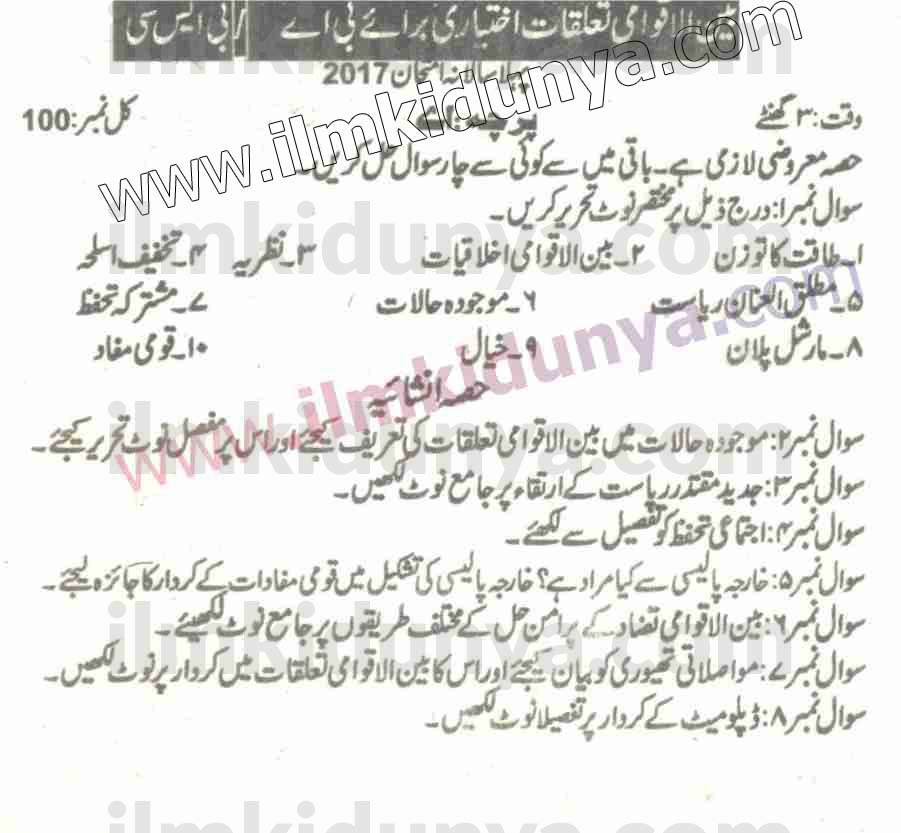 بین الاقوامی تعلقات اختیاری برائے بی اے / بی ایس سی
پہلا سالانہ امتحان 2017
وقت: ۳ گھنٹے پرچہ: اے کل نمبر: 100
حصہ معروضی لازمی ہے۔ باقی میں سے کوئی سے چار سوال حل کریں۔
سوال نمبر۱: درج ذیل پر مختصر نوٹ تحریر کریں۔
۱۔ طاقت کا توزن ۲۔ بین الاقوامی اخلاقیات ۳۔ نظریہ ۴۔ تخفیف اسلحہ
۵۔ مطلق العنان ریاست ۶۔ موجودہ حالات ۷۔ مشترکہ تحفظ
۸۔ مارشل پلان ۹۔ خیال ۱۰۔ قومی مفاد
حصہ انشائیہ
سوال نمبر۲: موجودہ حالات میں بین الاقوامی تعلقات کی تعریف کیجئے اور اس پر مفصل نوٹ تحریر کیجئے۔
سوال نمبر۳: جدید مقتدر ریاست کے ارتقاء پر جامع نوٹ لکھیں۔
سوال نمبر۴: اجتماعی تحفظ کو تفصیل سے لکھئے۔
سوال نمبر۵: خارجہ پالیسی سے کیا مراد ہے؟ خارجہ پالیسی کی تشکیل میں قومی مفادات کے کردار کا جائزہ لیجئے۔
سوال نمبر۶: بین الاقوامی تضاد کے پرامن حل کے مختلف طریقوں پر جامع نوٹ لکھیئے۔
سوال نمبر۷: مواصلاتی تھیوری کو بیان کیجئے اور اس کا بین الاقوامی تعلقات میں کردار پر نوٹ لکھیں۔
سوال نمبر۸: ڈپلومیٹ کے کردار پر تفصیلا نوٹ لکھیں۔
www.ilmkidunya.com
www.ilmkidunya.com
ilmkidunya.com
ilmkidunya.com
ilmkidunya.com
ilmkidunya.com
ilmkidunya.com